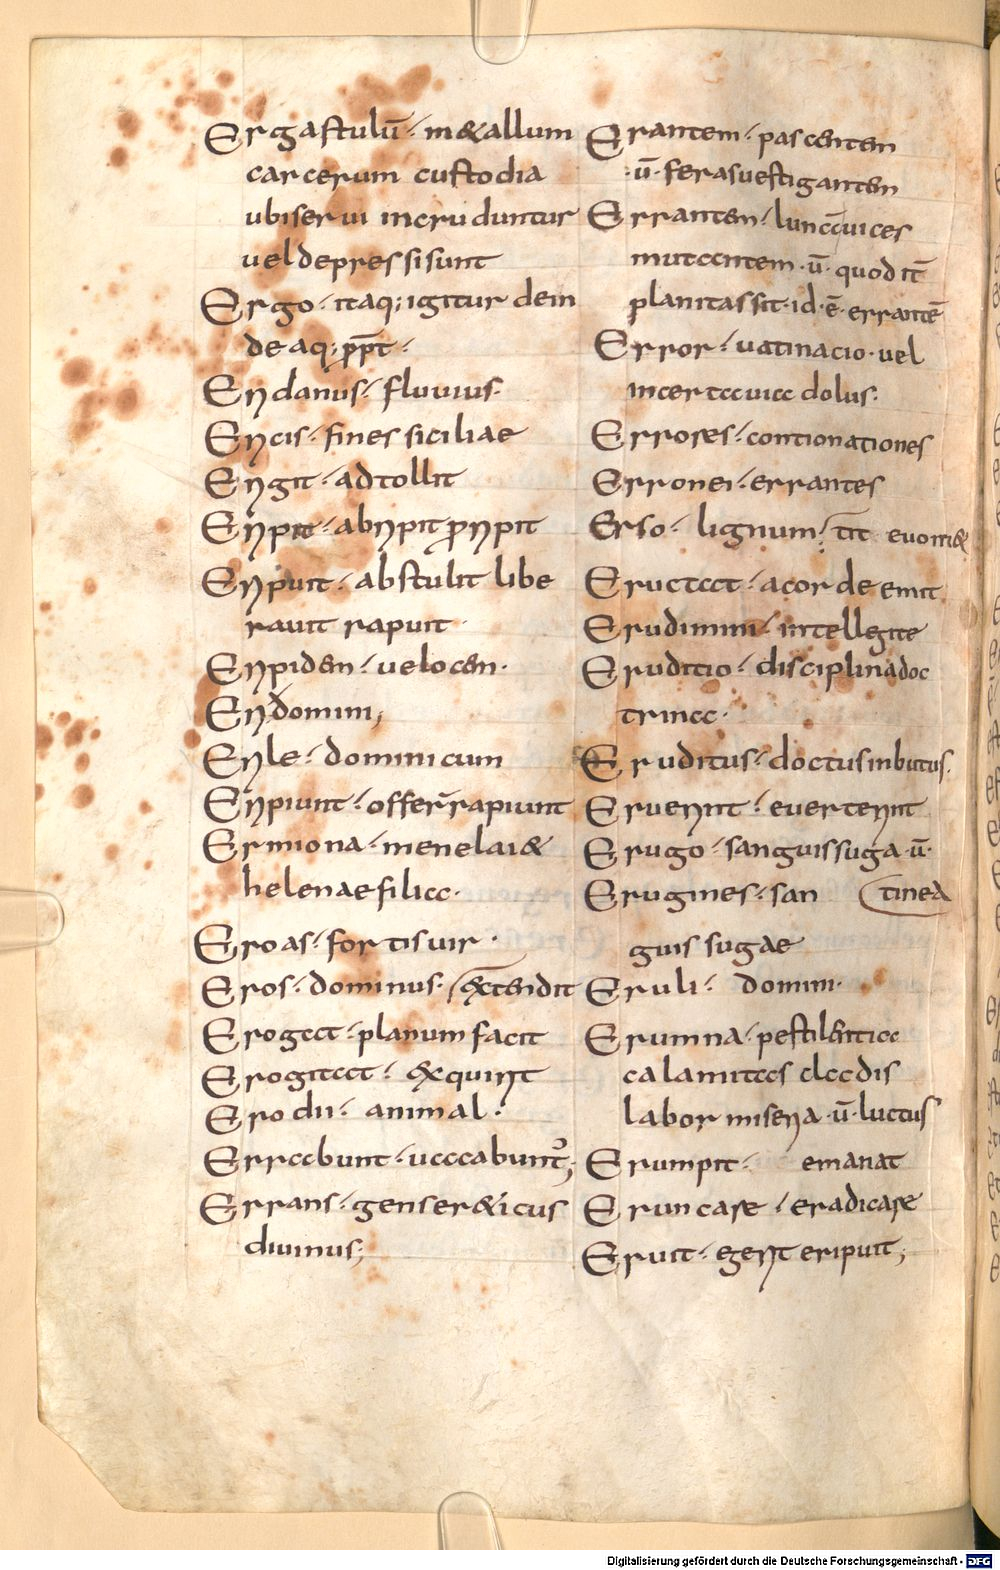 Ergastulū· in&allum
carcerum custodia
ubiserui incruduntur
vel depressisunt
Ergo· itaq; igitur dein
de aq; ppt·
Eridanus· fluvius·
Ericis· fines siciliae
Erigit· adtollit
Eripit· abripit proripit
Eripuit· abstulit libe
rauit rapuit
Eripidem· velocem·
Eri domini;
Erile· dominicum
Eripiunt· offer rapiunt
Ermiona· menelai&
helenae filia·
Eroas· fortis uir·
Eros· dominus· extendit
Erogat· planum facit
Erogitat· exquirit
Erodii· animal·
Errabunt· uacabunt;
Errans· genser&icus
divinus;
Erantem· pascentem
·ū· feras uestigantem
Errantem· luna uices
mutantem·ū· quod it
planitas sit·id·ē·errantē
Error· vatinacio·vel
incerta uia dolus·
Errores· contionationes
Erronei· errantes
Erso· lignum· tit evomi&
Eructat· acorde emit
Erudimini· intellegite
Eruditio· disciplina doc
trina·
Eruditus· doctus inbutus·
Eruerint· everterint
Erugo· sanguissuga·ū·
Erugines· san tinea
guis sugae
Eruli· domini·
Erumna· pestilentia
calamitas cladis
labor miseria·ū·luctus
Erumpit· emanat
Eruncare· eradicare
Eruit· egerit eripuit;
Digitalisierung gefördert durch die Deutsche Forschungsgemeinschaft - DFG